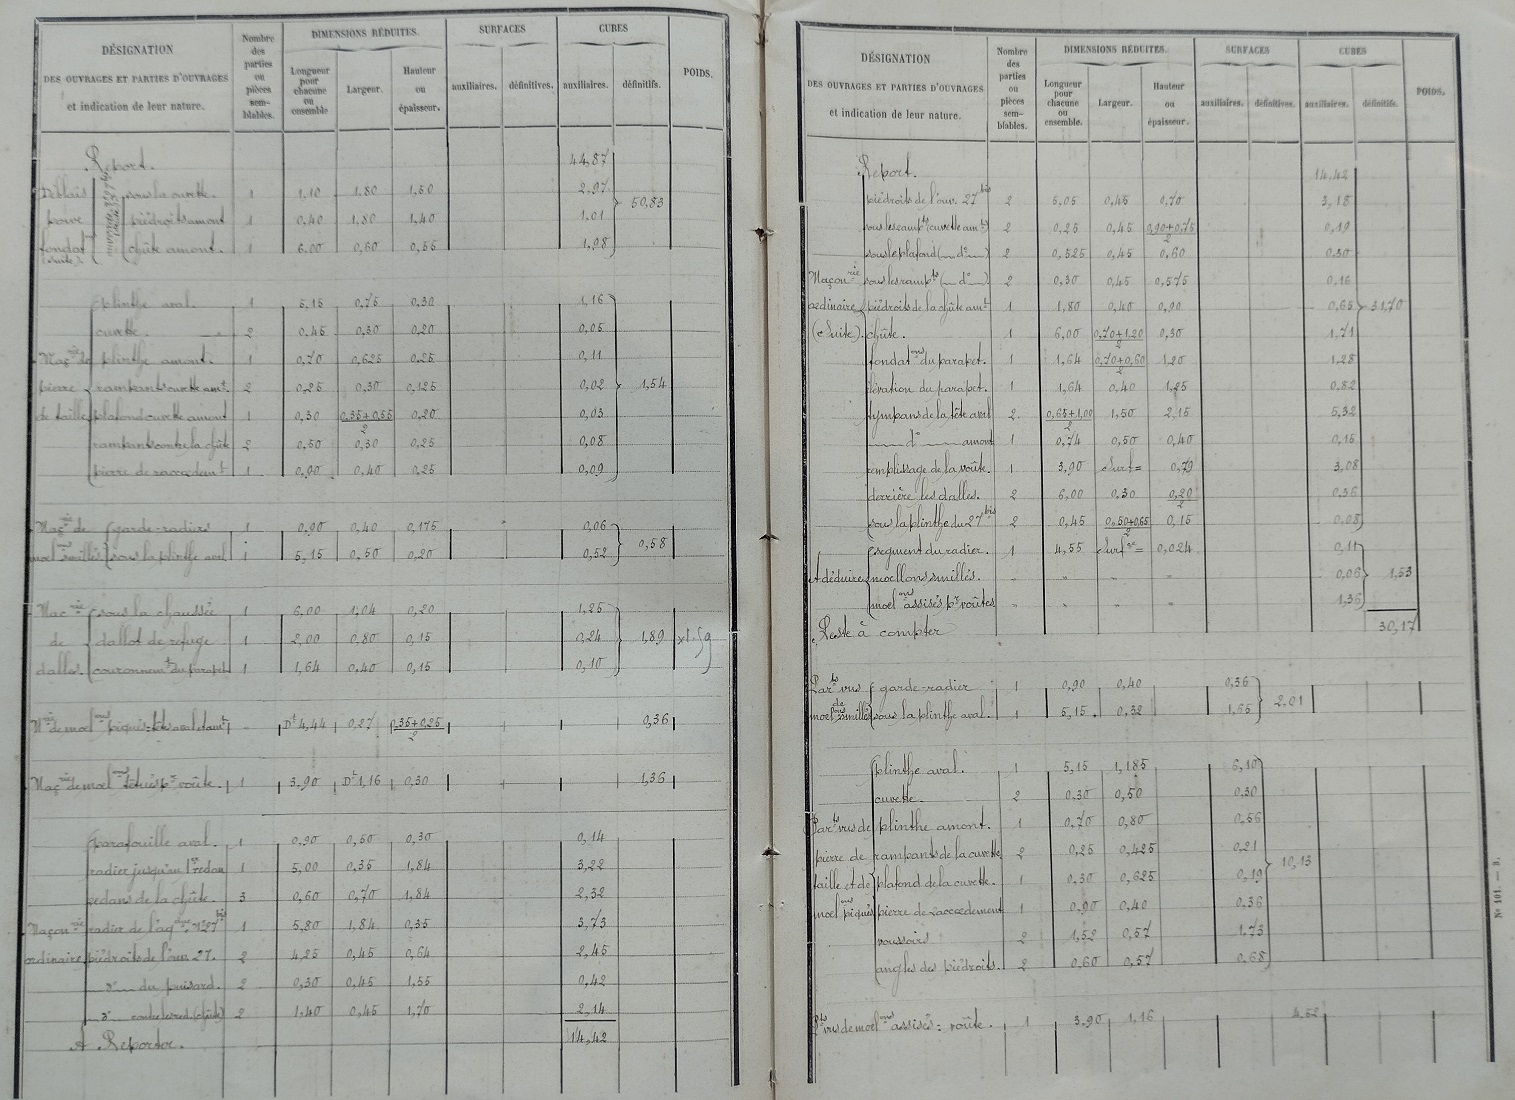 DÉSIGNATION
DES OUVRAGES ET PARTIES D'OUVRAGES
et indication de leur nature.
Nombre des parties ou pièces sem- blables.
DIMENSIONS RÉDUITES.
Longueur pour chacune ou ensemble
Largeur.
Hauteur ou épaisseur.
SURFACES
auxiliaires.
définitives.
CUBES
auxiliaires.
définitifs.
POIDS.
Report. 44,87
Déblais sous la cuvette. 1 1,10 1,80 1,50 2,97
pour piédroits amont 1 0,40 1,80 1,40 1,01 50,83
fondat chûte amont. 1 6,00 0,60 0,55 1,98
(suite).
plinthe aval. 1 5,15 0,75 0,30 1,16
cuvette. 2 0,45 0,30 0,20 0,05
Maçrie de plinthe amont. 1 0,70 0,625 0,25 0,11
pierre rampants cuvette amt. 2 0,25 0,30 0,125 0,02 1,54
de taille plafond cuvette amont 1 0,30 0,35+0,55/2 0,20 0,03
rampants contre la chûte 2 0,50 0,30 0,25 0,08
pierre de raccordemt 1 0,90 0,40 0,25 0,09
Maçrie de garde-radiers 1 0,90 0,40 0,175 0,06
moelons smillés sous la plinthe aval 1 5,15 0,50 0,20 0,52 0,58
Maçrie sous la chaussée 1 6,00 1,04 0,20 1,25
de dallot de refuge 1 2,00 0,80 0,15 0,24 1,89
dalles. couronnemt du parapet 1 1,64 0,40 0,15 0,10
Mrie de moelons piqués: têtes aval et amt Dt 4,44 0,27 0,35+0,25/2 0,36
Maçrie de moelons têtués pr voûte. 1 3,90 Dt 1,16 0,30 1,36
parafouille aval. 1 0,90 0,50 0,30 0,14
radier jusqu'au 1er redan 1 5,00 0,35 1,84 3,22
redans de la chûte. 3 0,60 0,70 1,84 2,32
Maçonrie radier de l'aqduc n°27bis 1 5,80 1,84 0,35 3,73
ordinaire. piédroits de l'ouv. 27. 2 4,25 0,45 0,64 2,45
d° du puisard. 2 0,30 0,45 1,55 0,42
d° contre le red. (chûte) 2 1,40 0,45 1,70 2,14
A Reporter. 14,42
DÉSIGNATION
DES OUVRAGES ET PARTIES D'OUVRAGES
et indication de leur nature.
Nombre des parties ou pièces sem- blables.
DIMENSIONS RÉDUITES.
Longueur pour chacune ou ensemble.
Largeur.
Hauteur ou épaisseur.
SURFACES
auxiliaires.
définitives.
CUBES
auxiliaires.
définitifs.
POIDS.
Report. 14,42
piédroits de l'ouv. 27bis 2 5,05 0,45 0,70 3,18
sous les rampts (cuvette amt) 2 0,25 0,45 0,90+0,75/2 0,19
sous le plafond (d°) 2 0,525 0,45 0,60 0,30
Maçonrie sous les rampts (d°) 2 0,30 0,45 0,575 0,16
ordinaire piédroits de la chûte amt 1 1,80 0,40 0,90 0,65 31,70
(Suite). chûte. 1 6,00 0,70+1,20/2 0,30 1,71
fondatons du parapet. 1 1,64 0,70+0,60/2 1,20 1,28
élévation du parapet. 1 1,64 0,40 1,25 0,82
tympans de la tête aval 2 0,65+1,00/2 1,50 2,15 5,32
d° amont 1 0,74 0,50 0,40 0,15
remplissage de la voûte. 1 3,90 Surf = 0,79 3,08
derrière les dalles. 2 6,00 0,30 0,20/2 0,36
sous la plinthe du 27bis 2 0,45 0,50+0,65/2 0,15 0,08
segment du radier. 1 4,55 Surfce = 0,024 0,11
A déduire moellons smillés. " " " " 0,06 1,53
moelons assisés pr voûtes " " " " 1,36
Reste à compter 30,17
Parts vus garde-radier 1 0,90 0,40 0,36
de moelons smillés sous la plinthe aval. 1 5,15 0,32 1,65 2.01
plinthe aval. 1 5,15 1,185 6,10
cuvette. 2 0,30 0,50 0,30
Parts vus de plinthe amont. 1 0,70 0,80 0,56
pierre de rampants de la cuvette 2 0,25 0,425 0,21
taille et de plafond de la cuvette. 1 0,30 0,625 0,19 10,13
moelons piqués pierre de raccordement 1 0,90 0,40 0,36
voussoirs 2 1,52 0,57 1,73
angles des piédroits. 2 0,60 0,57 0,68
Pts vus de moelons assisés: voûte. 1 3,90 1,16 4,52
N° 101. — 3.